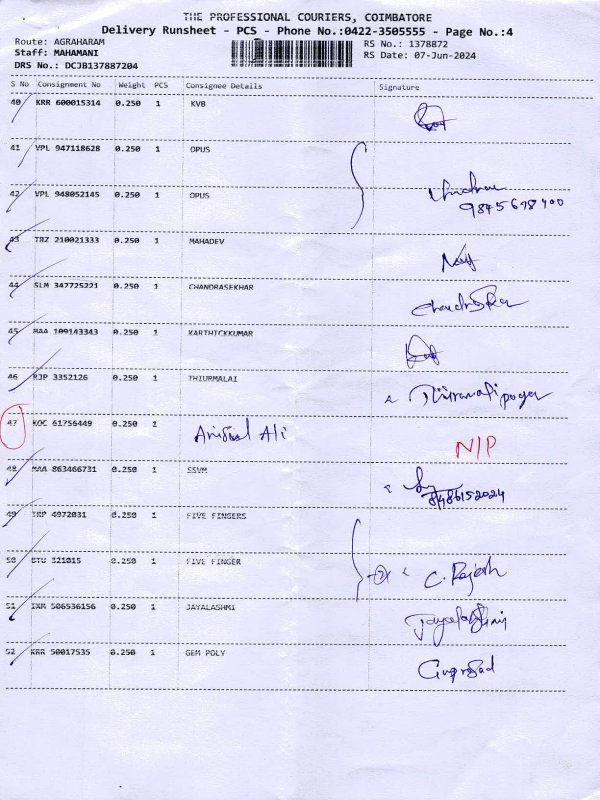 THE PROFESSIONAL COURIERS, COIMBATORE
Delivery Runsheet - PCS - Phone No.:0422-3505555 - Page No.:4
Route: AGRAHARAM RS No.: 1378872
Staff: MAHAMANI RS Date: 07-Jun-2024
DRS No.: DCJB137887204
S No Consignment No Weight PCS Consignee Details Signature
40 KRR 600015314 0.250 1 KVB
41 VPL 947118628 0.250 1 OPUS
42 VPL 948052145 0.250 1 OPUS
9845678400
43 TRZ 210021333 0.250 1 MAHADEV
44 SLM 347725221 0.250 1 CHANDRASEKHAR
45 MAA 109143343 0.250 1 KARTHICKKUMAR
46 RJP 3352126 0.250 1 THIURMALAI
47 KOC 61756449 0.250 1 Ali N/P
48 MAA 863466731 0.250 1 SSVM
8486152024
49 TRP 4972031 0.250 1 FIVE FINGERS
50 BTU 321015 0.250 1 FIVE FINGER C. Rajesh
51 IXM 506536156 0.250 1 JAYALASHMI
52 KRR 50017535 0.250 1 GEM POLY Guprasad